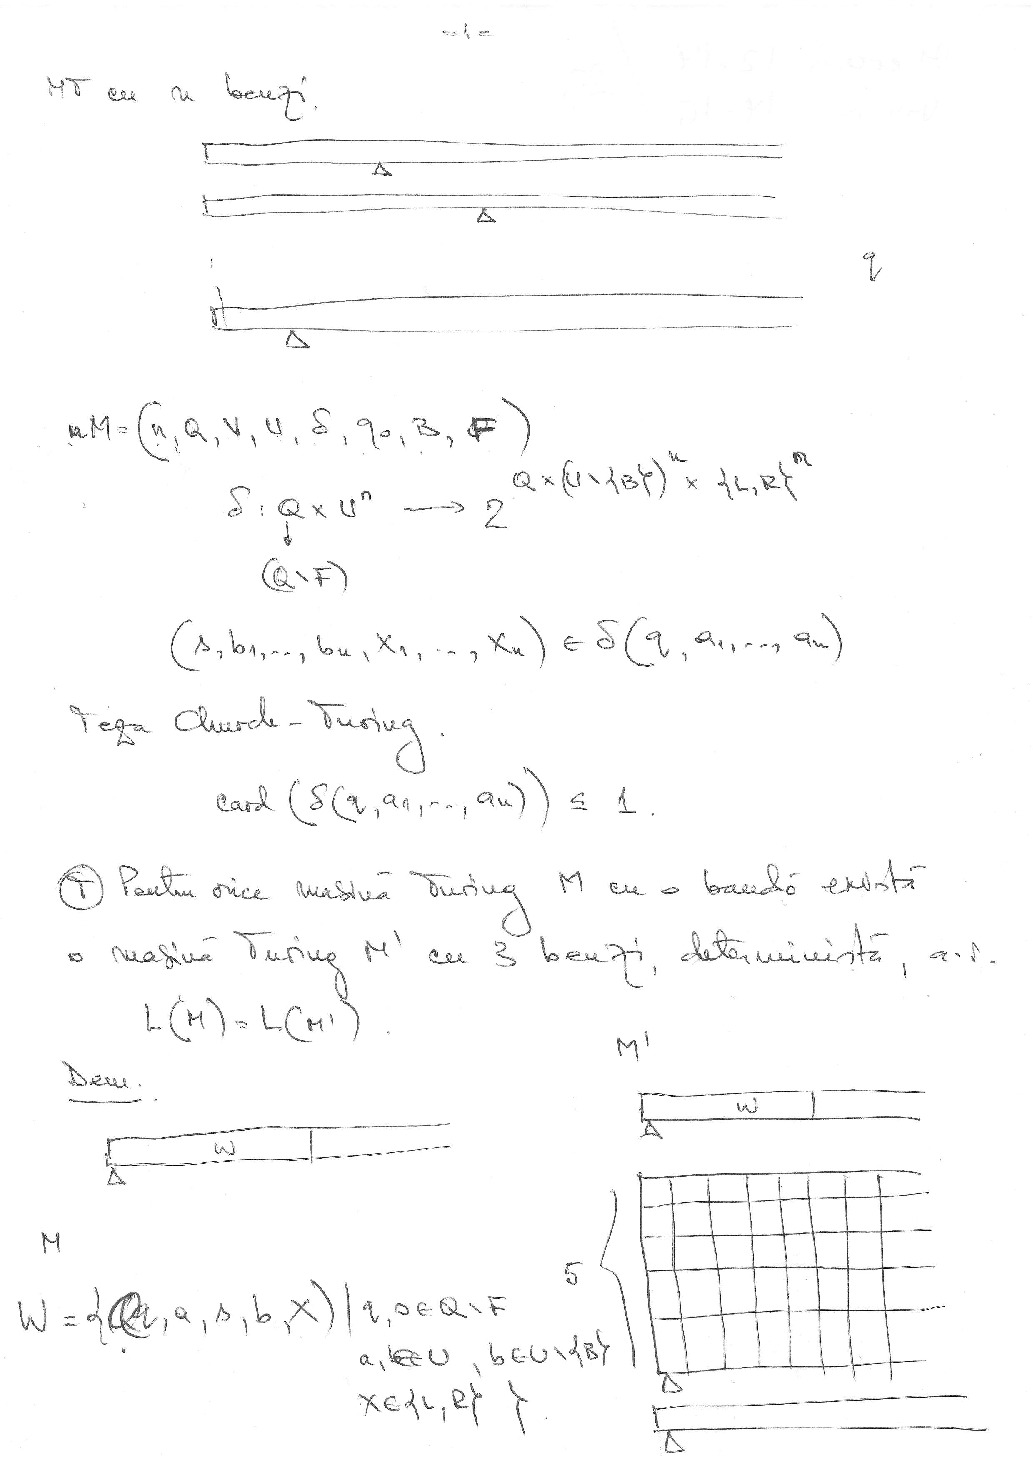 -1-
MT cu n benzi.
q
nM=(n, Q, V, U, δ, q₀, B, F)
δ: Q × Uⁿ → 2^{Q×(U\{B})ⁿ × {L,R}ⁿ}
↓
(Q\F)
(s, b₁, ..., bₙ, X₁, ..., Xₙ) ∈ δ(q, a₁, ..., aₙ)
Teza Church-Turing.
card (δ(q, a₁, ..., aₙ)) ≤ 1.
(T) Pentru orice mașină Turing M cu o bandă există
o mașină Turing M' cu 3 benzi, deterministă, a.î.
L(M) = L(M').
M'
Dem.
W
W
M
5
W = {(q, a, s, b, X) | q, s ∈ Q\F
a, ∈ U, b ∈ U\{B}
X ∈ {L, R} }.